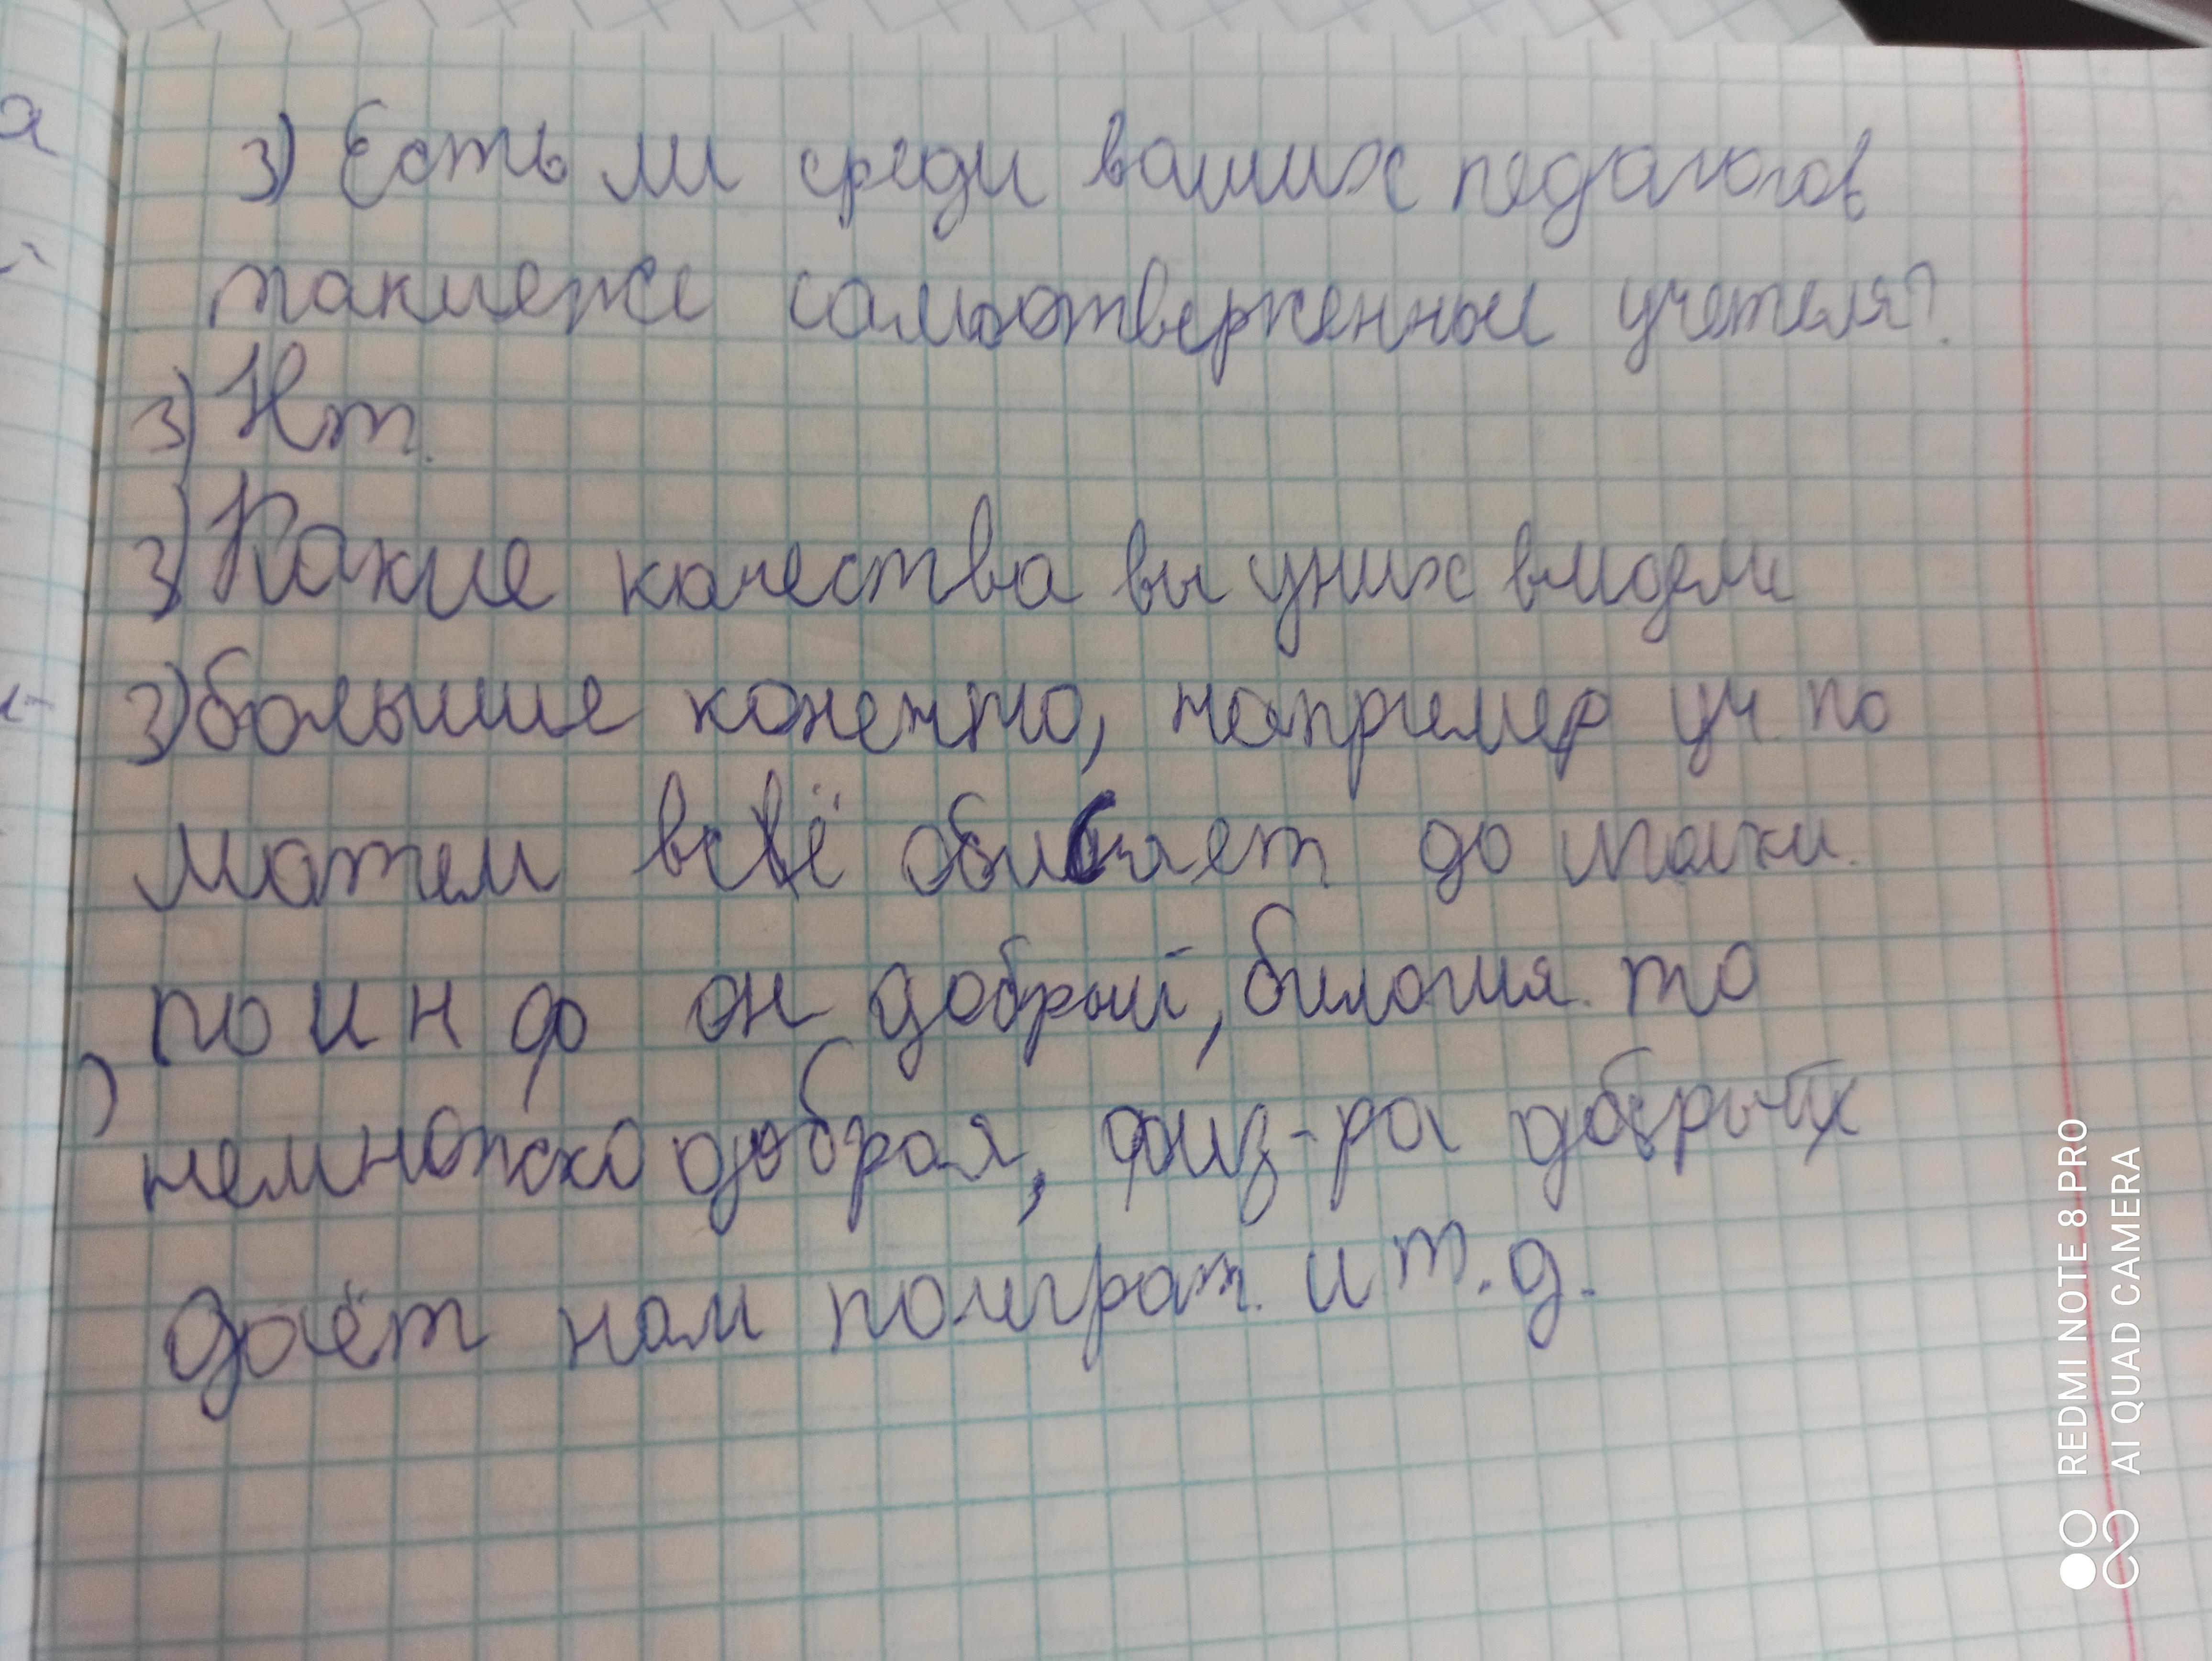 а
3) Есть ли среди ваших педагогов
такиеже самоотверженные учетеля?
3) Нет.
3) Какие качества вы уних
3) большие конечно, например уч. по
матем всё до
по и н ф он добрый, билогия. то
немножко добрая, физ-ра
даёт нам поиграт. и т. д.
REDMI NOTE 8 PRO
AI QUAD CAMERA